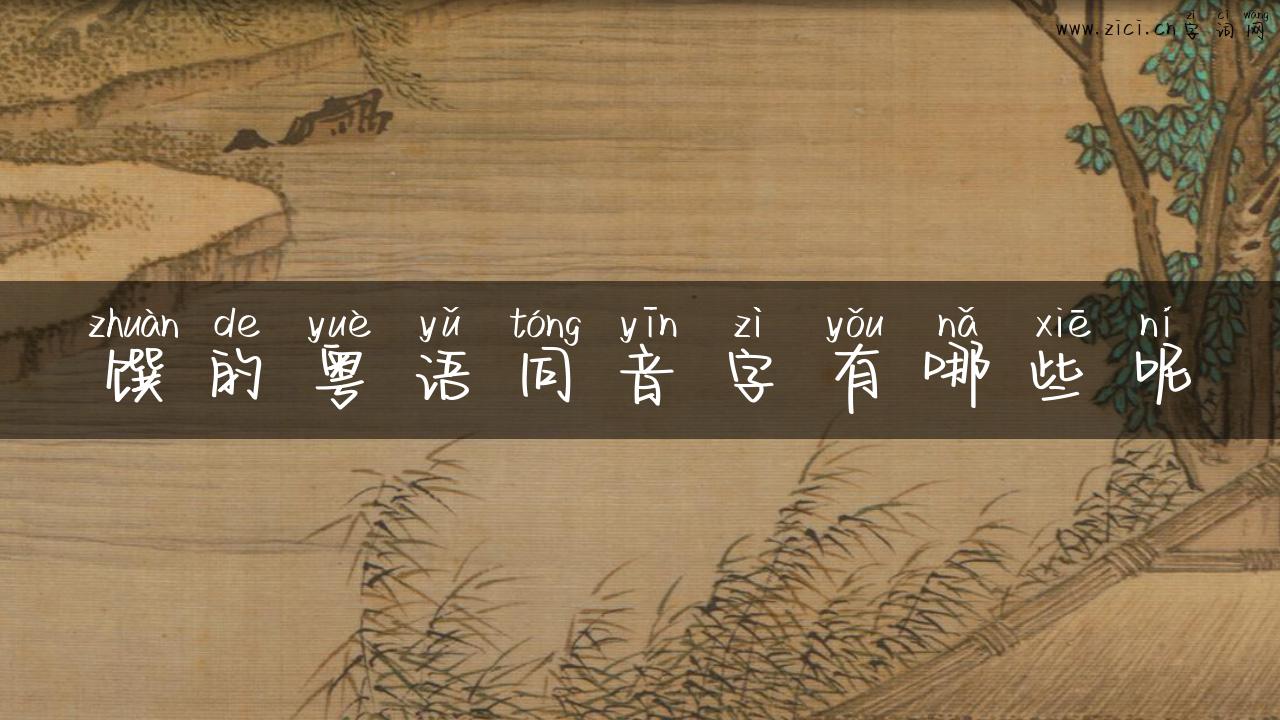 zì cí wǎng
www.zici.cn字词网
zhuàn de yuè yǔ tóng yīn zì yǒu nǎ xiē ní
馔的粤语同音字有哪些呢